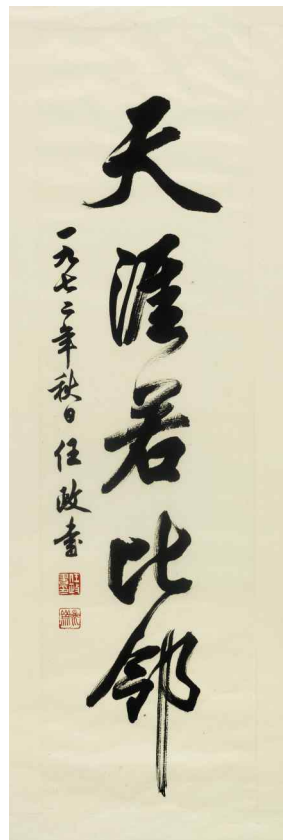 天涯若比邻
一九七二年秋日任政書